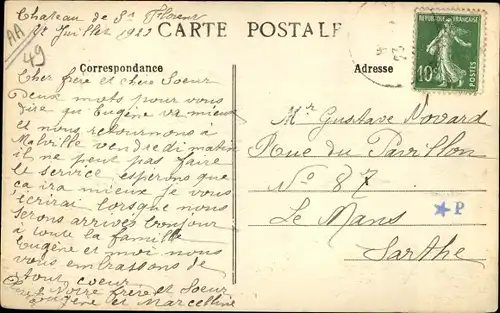 AA
49
Chateau de St Florent
12 Juillet 1922
CARTE POSTALE
Correspondance
Adresse
RÉPUBLIQUE FRANÇAISE
10c
POSTES
Cher frère et chère Soeur
Deux mots pour vous
dire qu'Eugène va mieux
et nous retournons à
Malville vendredi matin
il ne peut pas faire
le service, esperons que
ça ira mieux je vous
écrirai lorsque nous
serons arrivés bonjour
à toute la famille
Eugène et moi nous
vous embrassons de
tout coeur
Notre frère et Soeur
Eugène et Marcelline
Mr Gustave Novard
Rue du Pavillon
No 87
Le Mans
Sarthe
★P